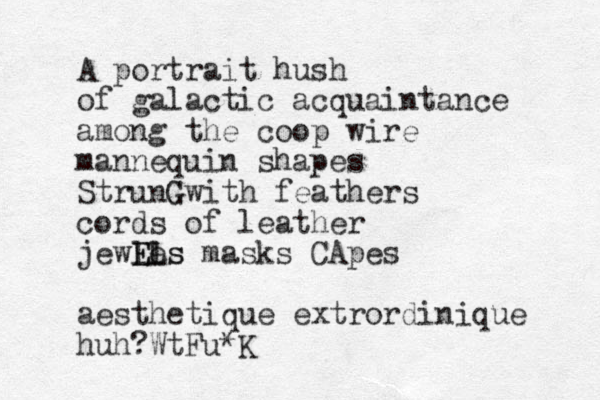 A portrait hush
of galactic acquaintance
among the coop wire
mannequin shapes
StrunGwith feathers
cords of leather
jewEls masks CApes

aesthetique extrordinique
huh?WtFu*K